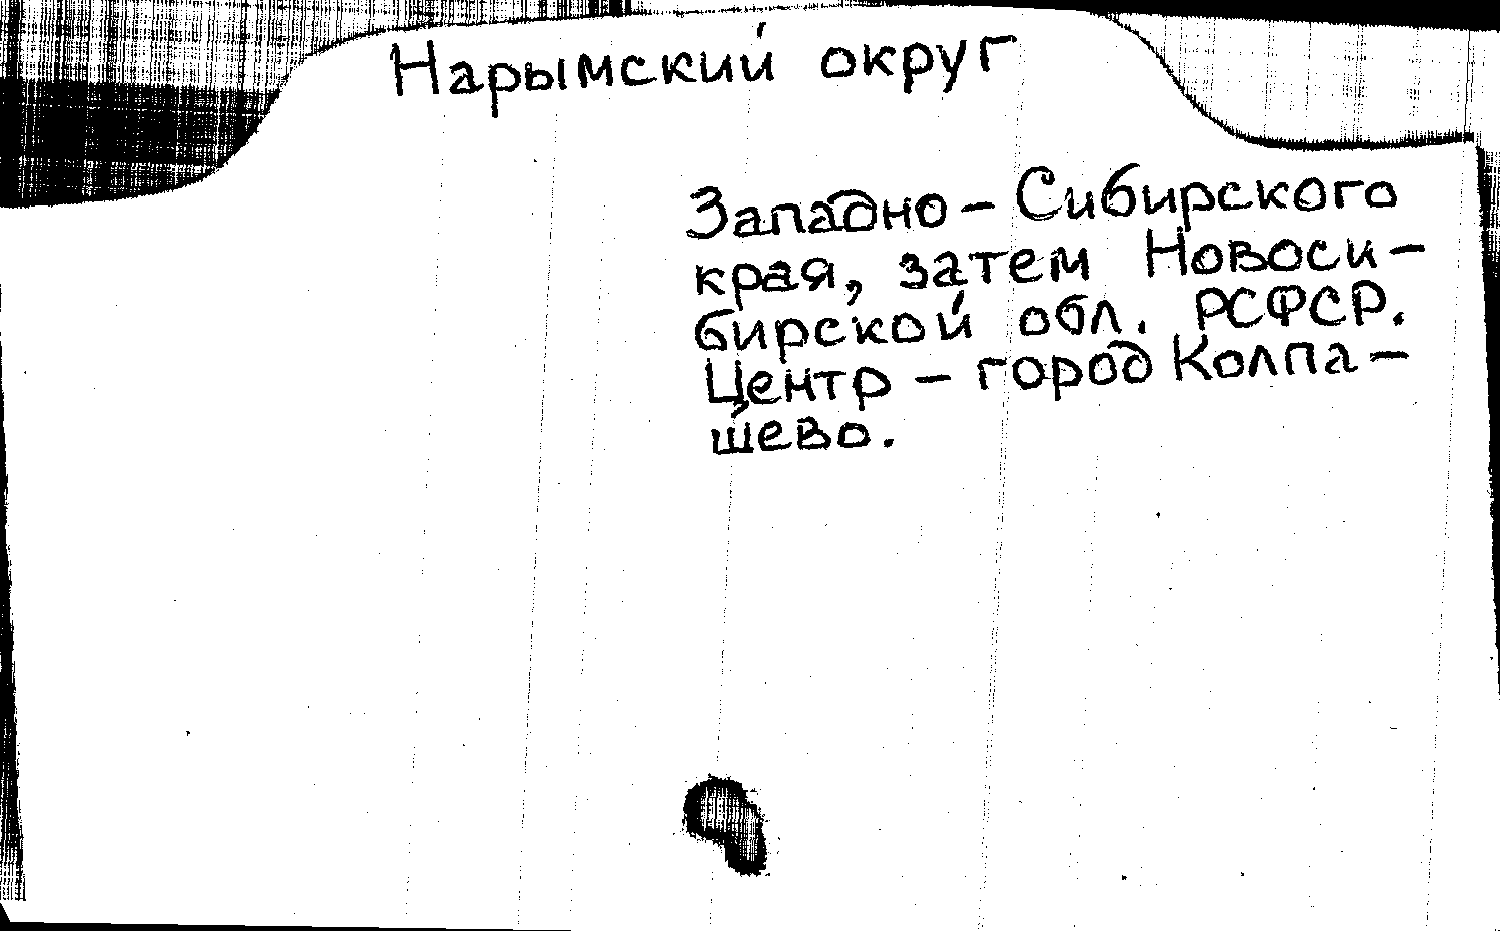 Нарымский округ
Западно - Сибирского
края, затем Новоси-
бирской обл. РСФСР.
Центр - город Колпа-
шево.